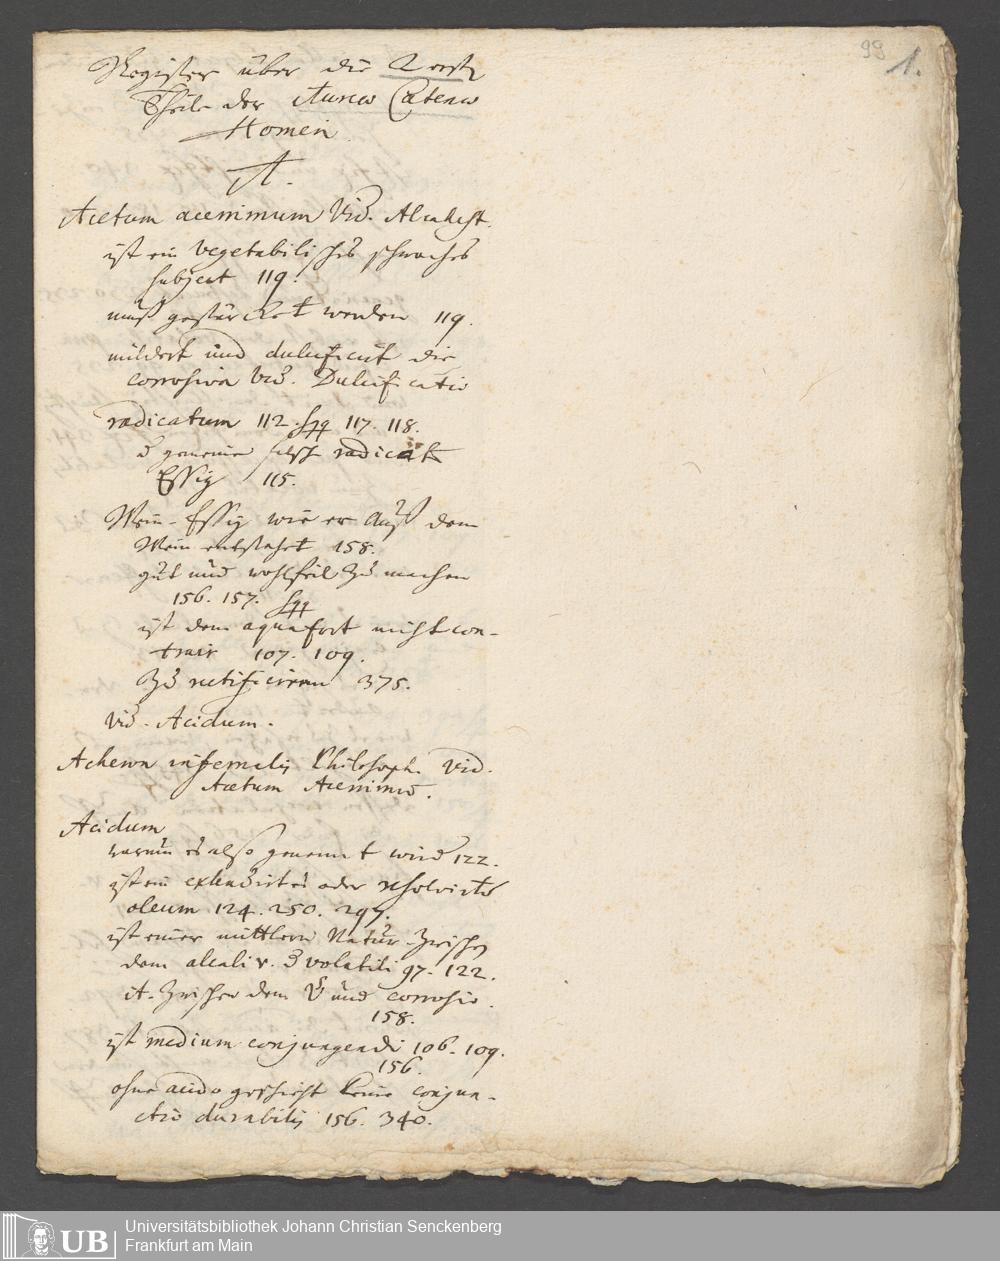 99 1.
Register über die 2 erste
Theile der Aurea Catena
Homeri
A.
Acetum acerrimum Vid. Alcahest.
ist ein vegetabilisches schwaches
subject 119.
muß gestärcket werden 119.
mildert und dulcificirt die
corrosiva Vid. Dulcificatio
radicatum 112. sqq 117. 118.
gemeine falsch radicat
Essig 115.
Wein-Essig wie er auß dem
Wein entstehet 158.
gut und wohlfeil zu machen
156. 157. sqq
ist dem aquafort nicht con-
trair 107. 109.
zu rectificiren 375.
Vid. Acidum.
Acheron infernalis Philosoph. Vid.
Acetum Acerrimum.
Acidum
warum es also genennt wird 122.
ist ein extendirtes oder resolvirtes
oleum 124. 250. 297.
ist einer mittlern Natur zwischen
dem alcali v. volatili 97. 122.
it. zwischen dem und corrosiv.
158.
ist medium conjungendi 106. 109.
156.
ohne acido geschieht keine conjun-
ctio durabilis 156. 340.
UB Universitätsbibliothek Johann Christian Senckenberg
Frankfurt am Main